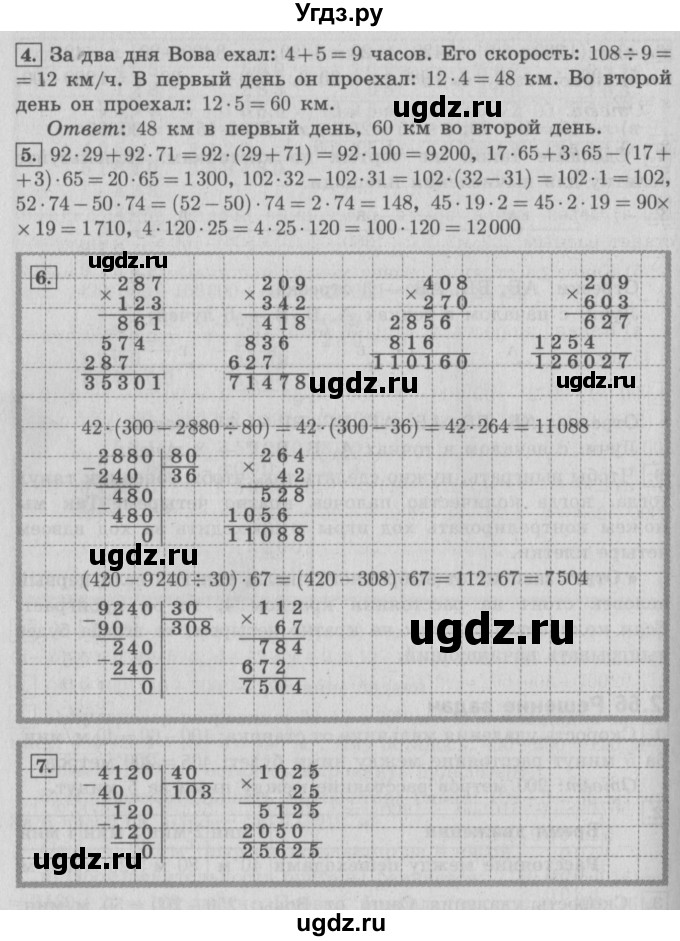 Угдз.ру
4. За два дня Вова ехал: 4+5=9 часов. Его скорость: 108÷9=
=12 км/ч. В первый день он проехал: 12·4=48 км. Во второй
день он проехал: 12·5=60 км.
ugdz.ru
Ответ: 48 км в первый день, 60 км во второй день.
5. 92·29+92·71=92·(29+71)=92·100=9200, 17·65+3·65−(17+
+3)·65=20·65=1300, 102·32−102·31=102·(32−31)=102·1=102,
52·74−50·74=(52−50)·74=2·74=148, 45·19·2=45·2·19=90×
×19=1710, 4·120·25=4·25·120=100·120=12000
ugdz.ru ugdz.ru
6. 287 209 408 209
× 123 × 342 × 270 × 603
861 418 2856 627
574 836 816 1254
287 627 110160 126027
35301 71478
ugdz.ru ugdz.ru
42·(300−2880÷80)=42·(300−36)=42·264=11088
2880 80 × 264
−240 36 42
−480 528
480 1056
0 11088
ugdz.ru ugdz.ru
(420−9240÷30)·67=(420−308)·67=112·67=7504
−9240 30 × 112
90 308 67
−240 784
240 672
0 7504
ugdz.ru
7. −4120 40 × 1025
40 103 25
−120 5125
120 2050
0 25625
ugdz.ru ugdz.ru
ugdz.ru